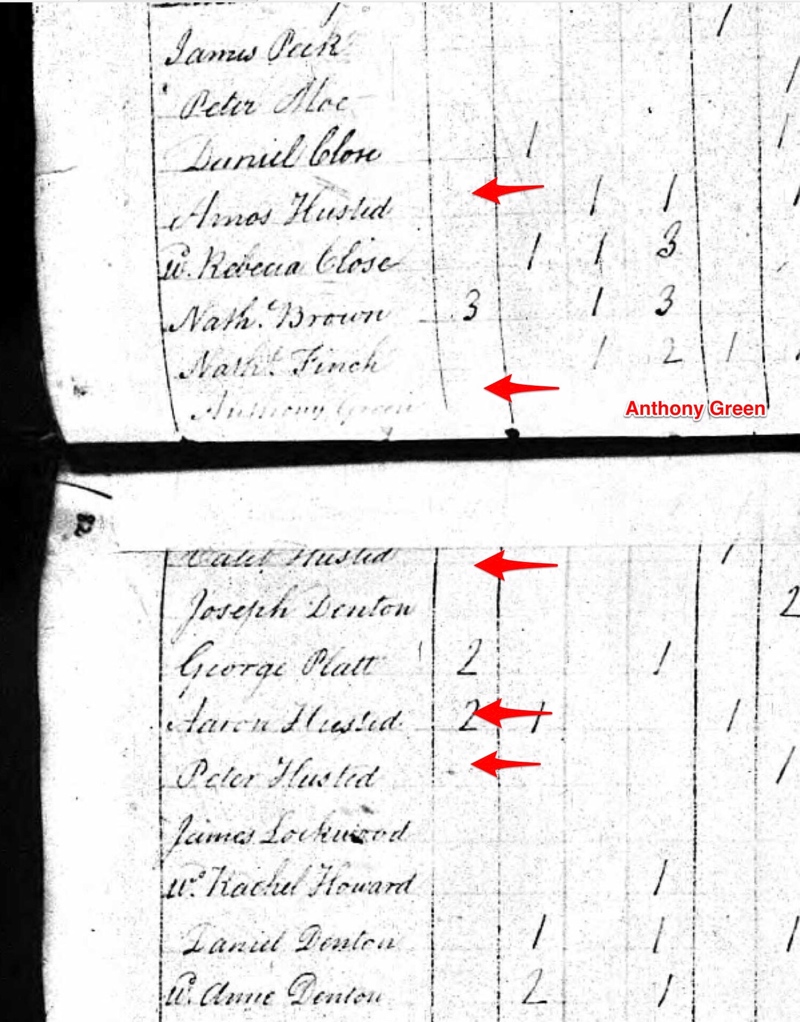 1
James Peck
Peter Moe 1
Daniel Close 1 1
Amos Husted 1 1 1
W.d Rebecca Close 1 1 3
Nath.l Brown 3 1 3
Nath.l Finch 1 2 1 1
Anthony Green Anthony Green
Caleb Husted 1
Joseph Denton 2
George Platt 2 1
Aaron Husted 2 1 1
Peter Husted 1
James Lockwood
W.d Rachel Howard 1
Daniel Denton 1 1 1
W.d Anne Denton 2 1